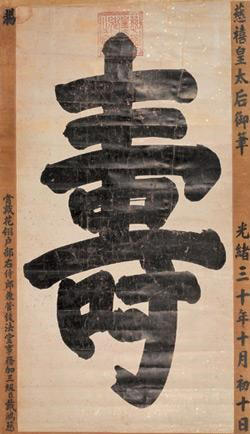 慈禧皇太后御筆 光緒三十年十月初十日
壽
賞戴花翎户部右侍郎兼管錢法堂事務加三級臣戴鴻慈